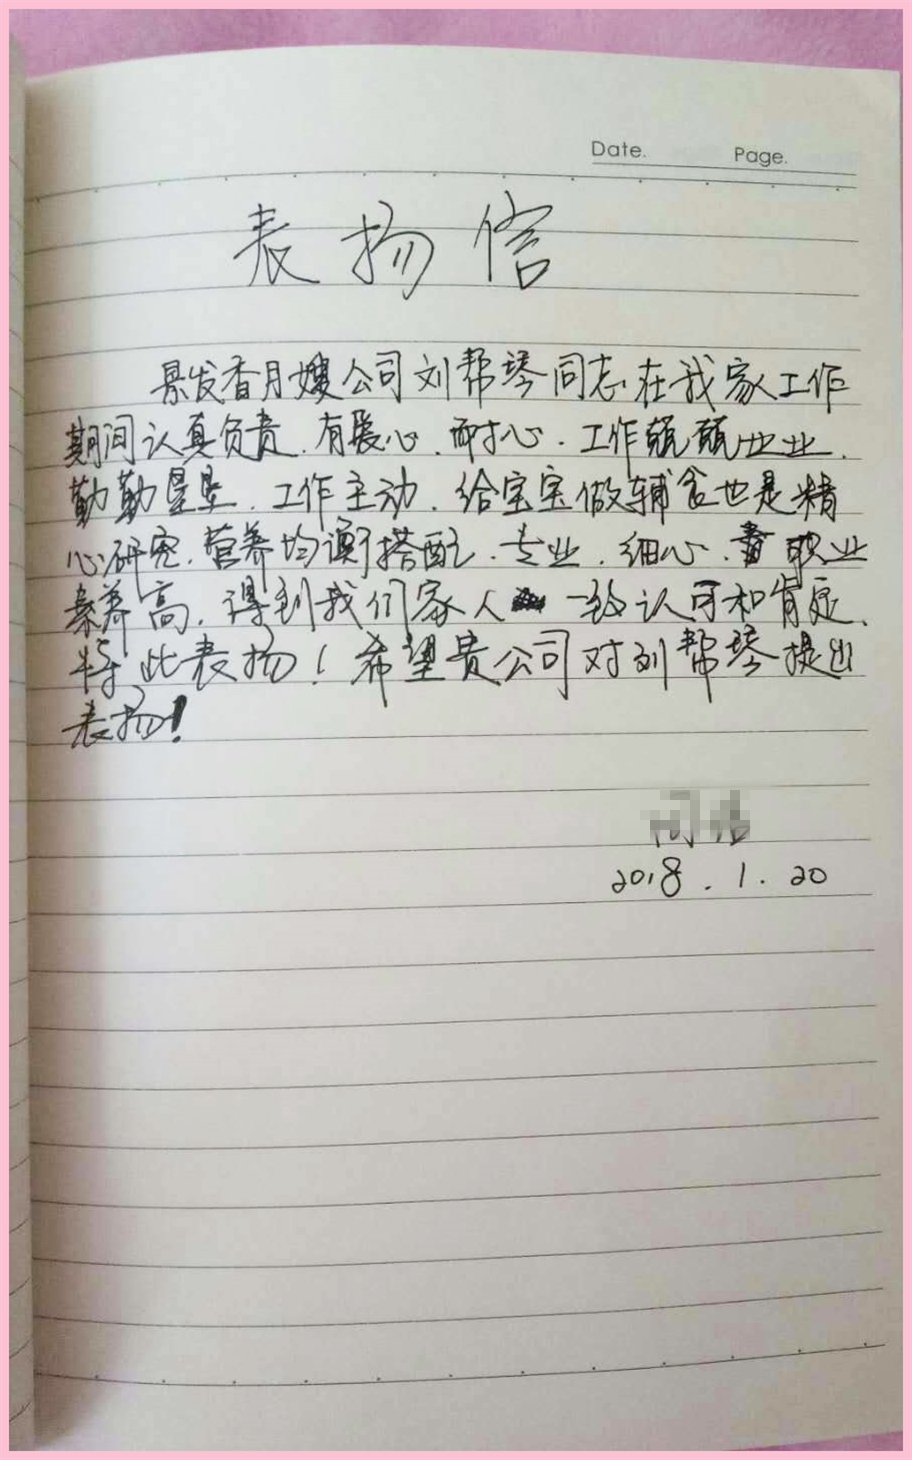 Date. Page.
表扬信
景发香月嫂公司刘帮琴同志在我家工作
期间认真负责.有爱心.耐心.工作兢兢业业.
勤勤垦垦.工作主动.给宝宝做辅食也是精
心研究.营养均衡搭配.专业.细心.职业
素养高.得到我们家人一致认可和肯定.
特此表扬!希望贵公司对刘帮琴提出
表扬!
2018.1.20